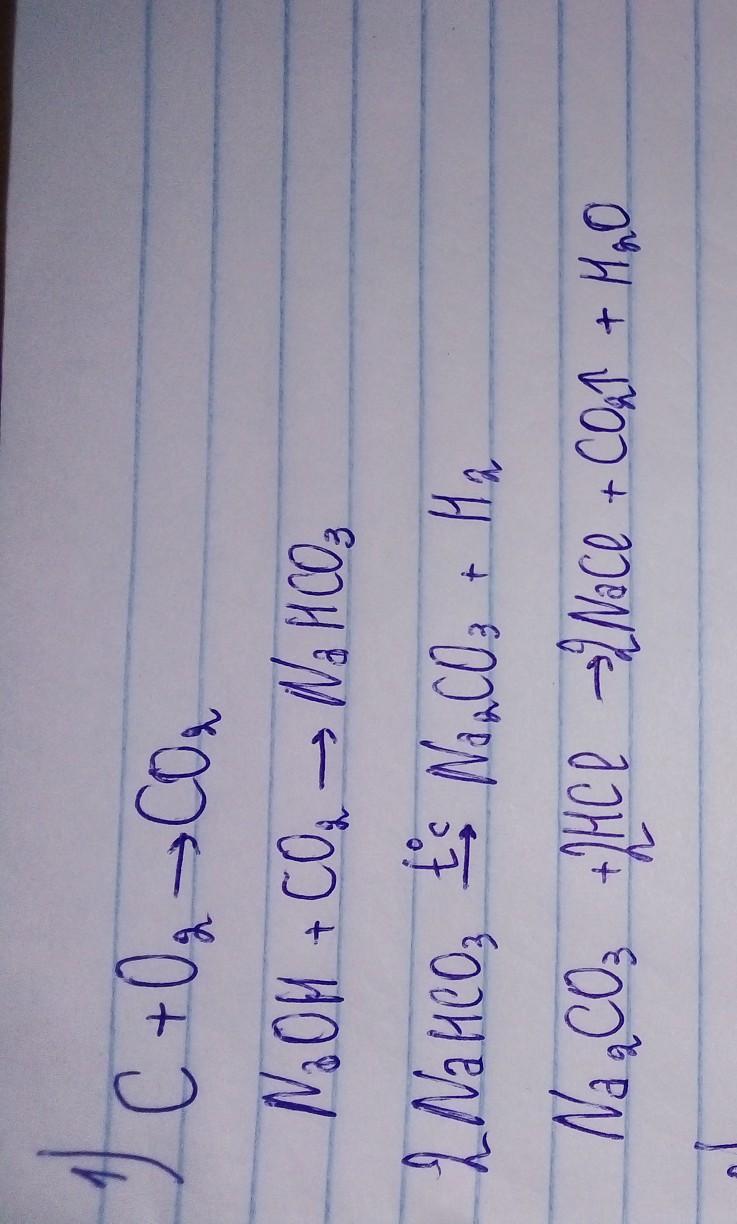 1) C + O₂ → CO₂
NaOH + CO₂ → NaHCO₃
2NaHCO₃ t°c→ Na₂CO₃ + H₂
Na₂CO₃ + 2HCl → 2NaCl + CO₂↑ + H₂O